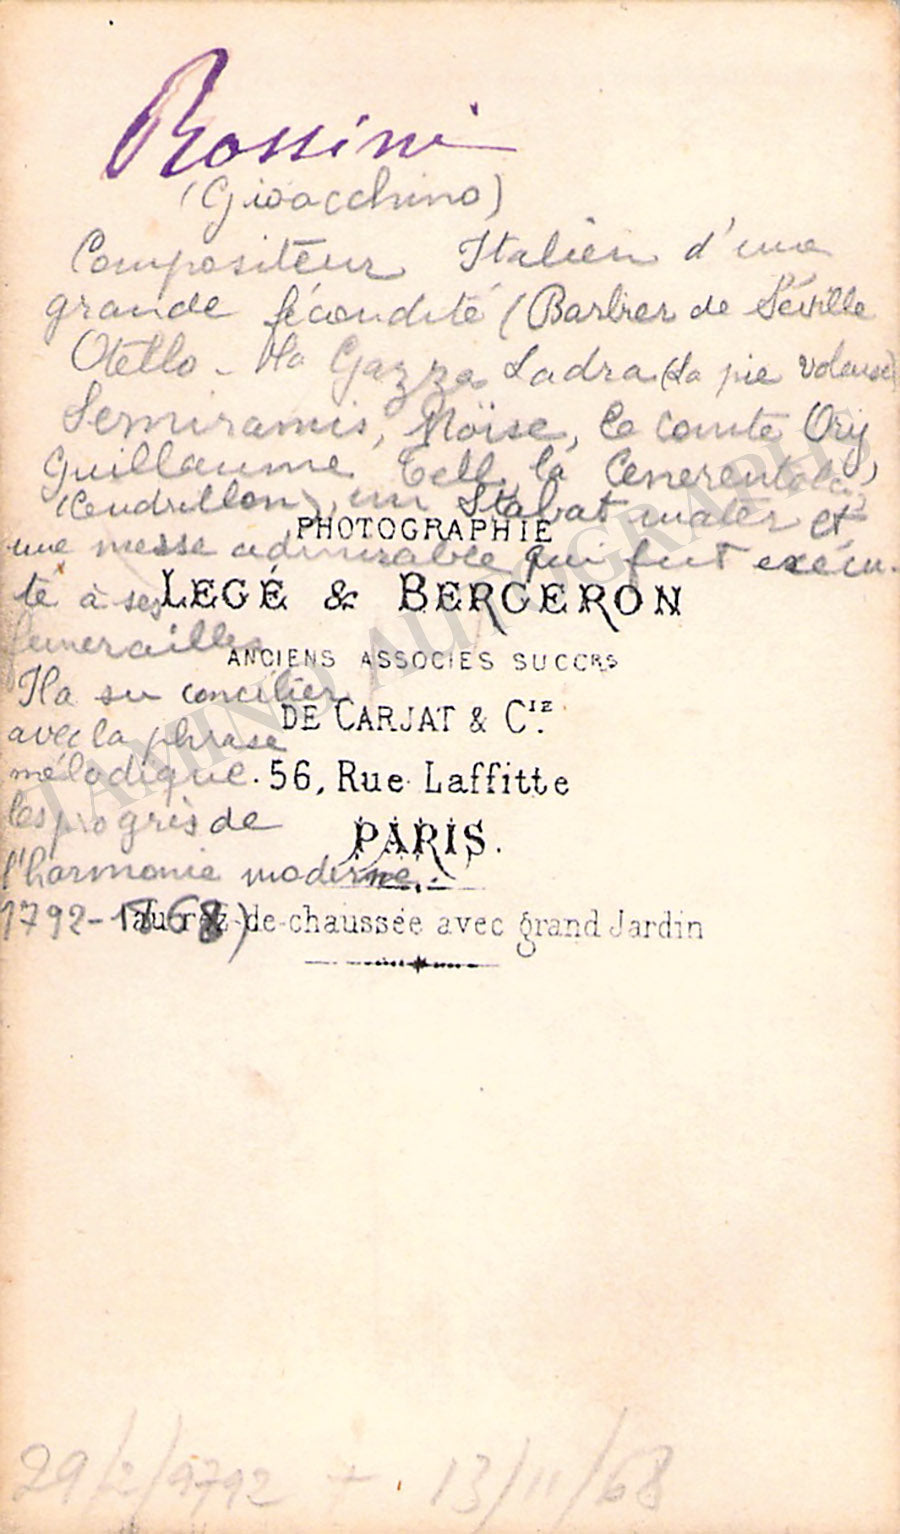 Rossini
(Gioacchino)
Compositeur Italien d'une
grande fécondité (Barbier de Séville
Otello - la Gazza Ladra (la pie voleuse)
Semiramis, Moïse, le comte Ory
Guillaume Tell, la Cenerentola,
(Cendrillon), un Stabat mater et
PHOTOGRAPHIE
une messe admirable qui fut exécu-
té à ses
LEGÉ & BERGERON
funerailles
ANCIENS ASSOCIES SUCCRS
Il a su concilier
DE CARJAT & CIE.
avec la phrase
mélodique.
56, Rue Laffitte
les progrès de
PARIS.
l'harmonie moderne.
1792-1868)
au rez-de-chaussée avec grand Jardin
29/2/9792 + 13/11/68
TAMINO AUTOGRAPHS